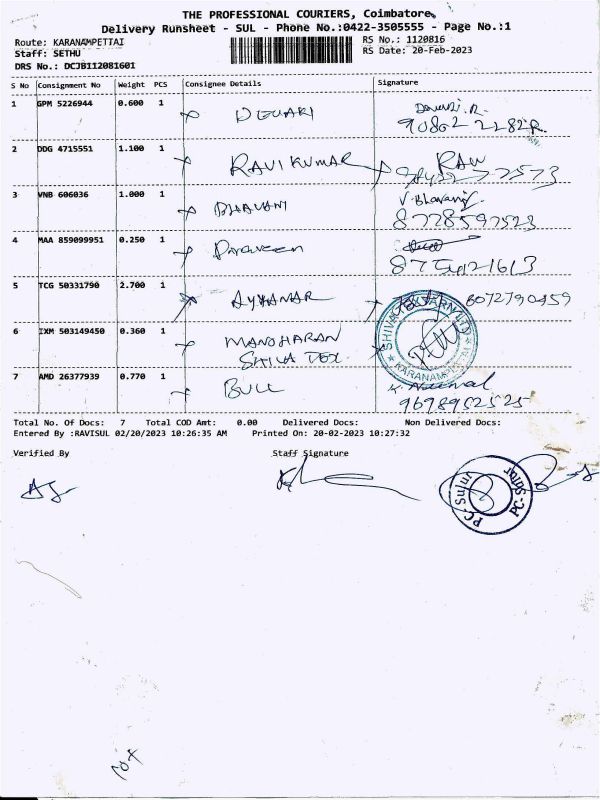 THE PROFESSIONAL COURIERS, Coimbatore.
Delivery Runsheet - SUL - Phone No.:0422-3505555 - Page No.:1
Route: KARANAMPETTAI RS No.: 1120816
Staff: SETHU RS Date: 20-Feb-2023
DRS No.: DCJB112081601
S No Consignment No Weight PCS Consignee Details Signature
1 GPM 5226944 0.600 1 DEVAKI Devaki.R.
2 DDG 4715551 1.100 1 RAVIKUMAR
3 VNB 606036 1.000 1 BHAVANI V. Bhavani
8778597523
4 MAA 859099951 0.250 1 Praveen
5 TCG 50331790 2.700 1 AYYANAR 8072790459
6 IXM 503149450 0.360 1 MANOHARAN
KARANAMPETTAI
7 AMD 26377939 0.770 1 BULL K. Nirmal
9698952525
Total No. Of Docs: 7 Total COD Amt: 0.00 Delivered Docs: Non Delivered Docs:
Entered By :RAVISUL 02/20/2023 10:26:35 AM Printed On: 20-02-2023 10:27:32
Verified By Staff Signature
PC-Sulur PC-Sulur